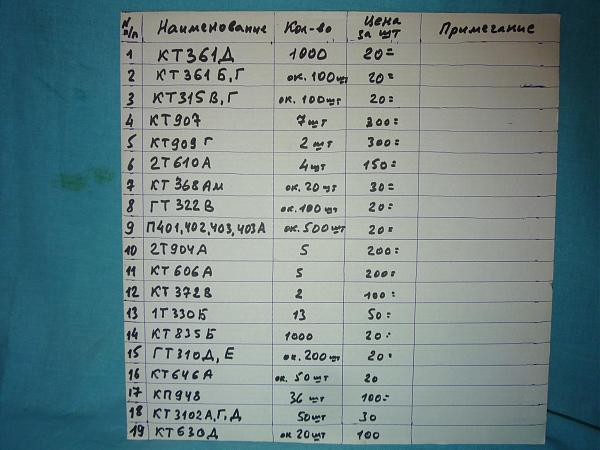 N п/п Наименование Кол-во Цена за шт Примечание
1 КТ361Д 1000 20=
2 КТ361Б,Г ок. 100шт 20=
3 КТ315В,Г ок. 100шт 20=
4 КТ907 7шт 300=
5 КТ909Г 2шт 300=
6 2Т610А 4шт 150=
7 КТ368АМ ок. 20шт 30=
8 ГТ322В ок. 100шт 20=
9 П401,402,403,403А ок. 500шт 20=
10 2Т904А 5 200=
11 КТ606А 5 200=
12 КТ372В 2 100=
13 1Т330Б 13 50=
14 КТ835Б 1000 20=
15 ГТ310Д,Е ок. 200шт 20=
16 КТ646А ок. 50шт 20
17 КП948 36шт 100=
18 КТ3102А,Г,Д 50шт 30
19 КТ630Д ок 20шт 100